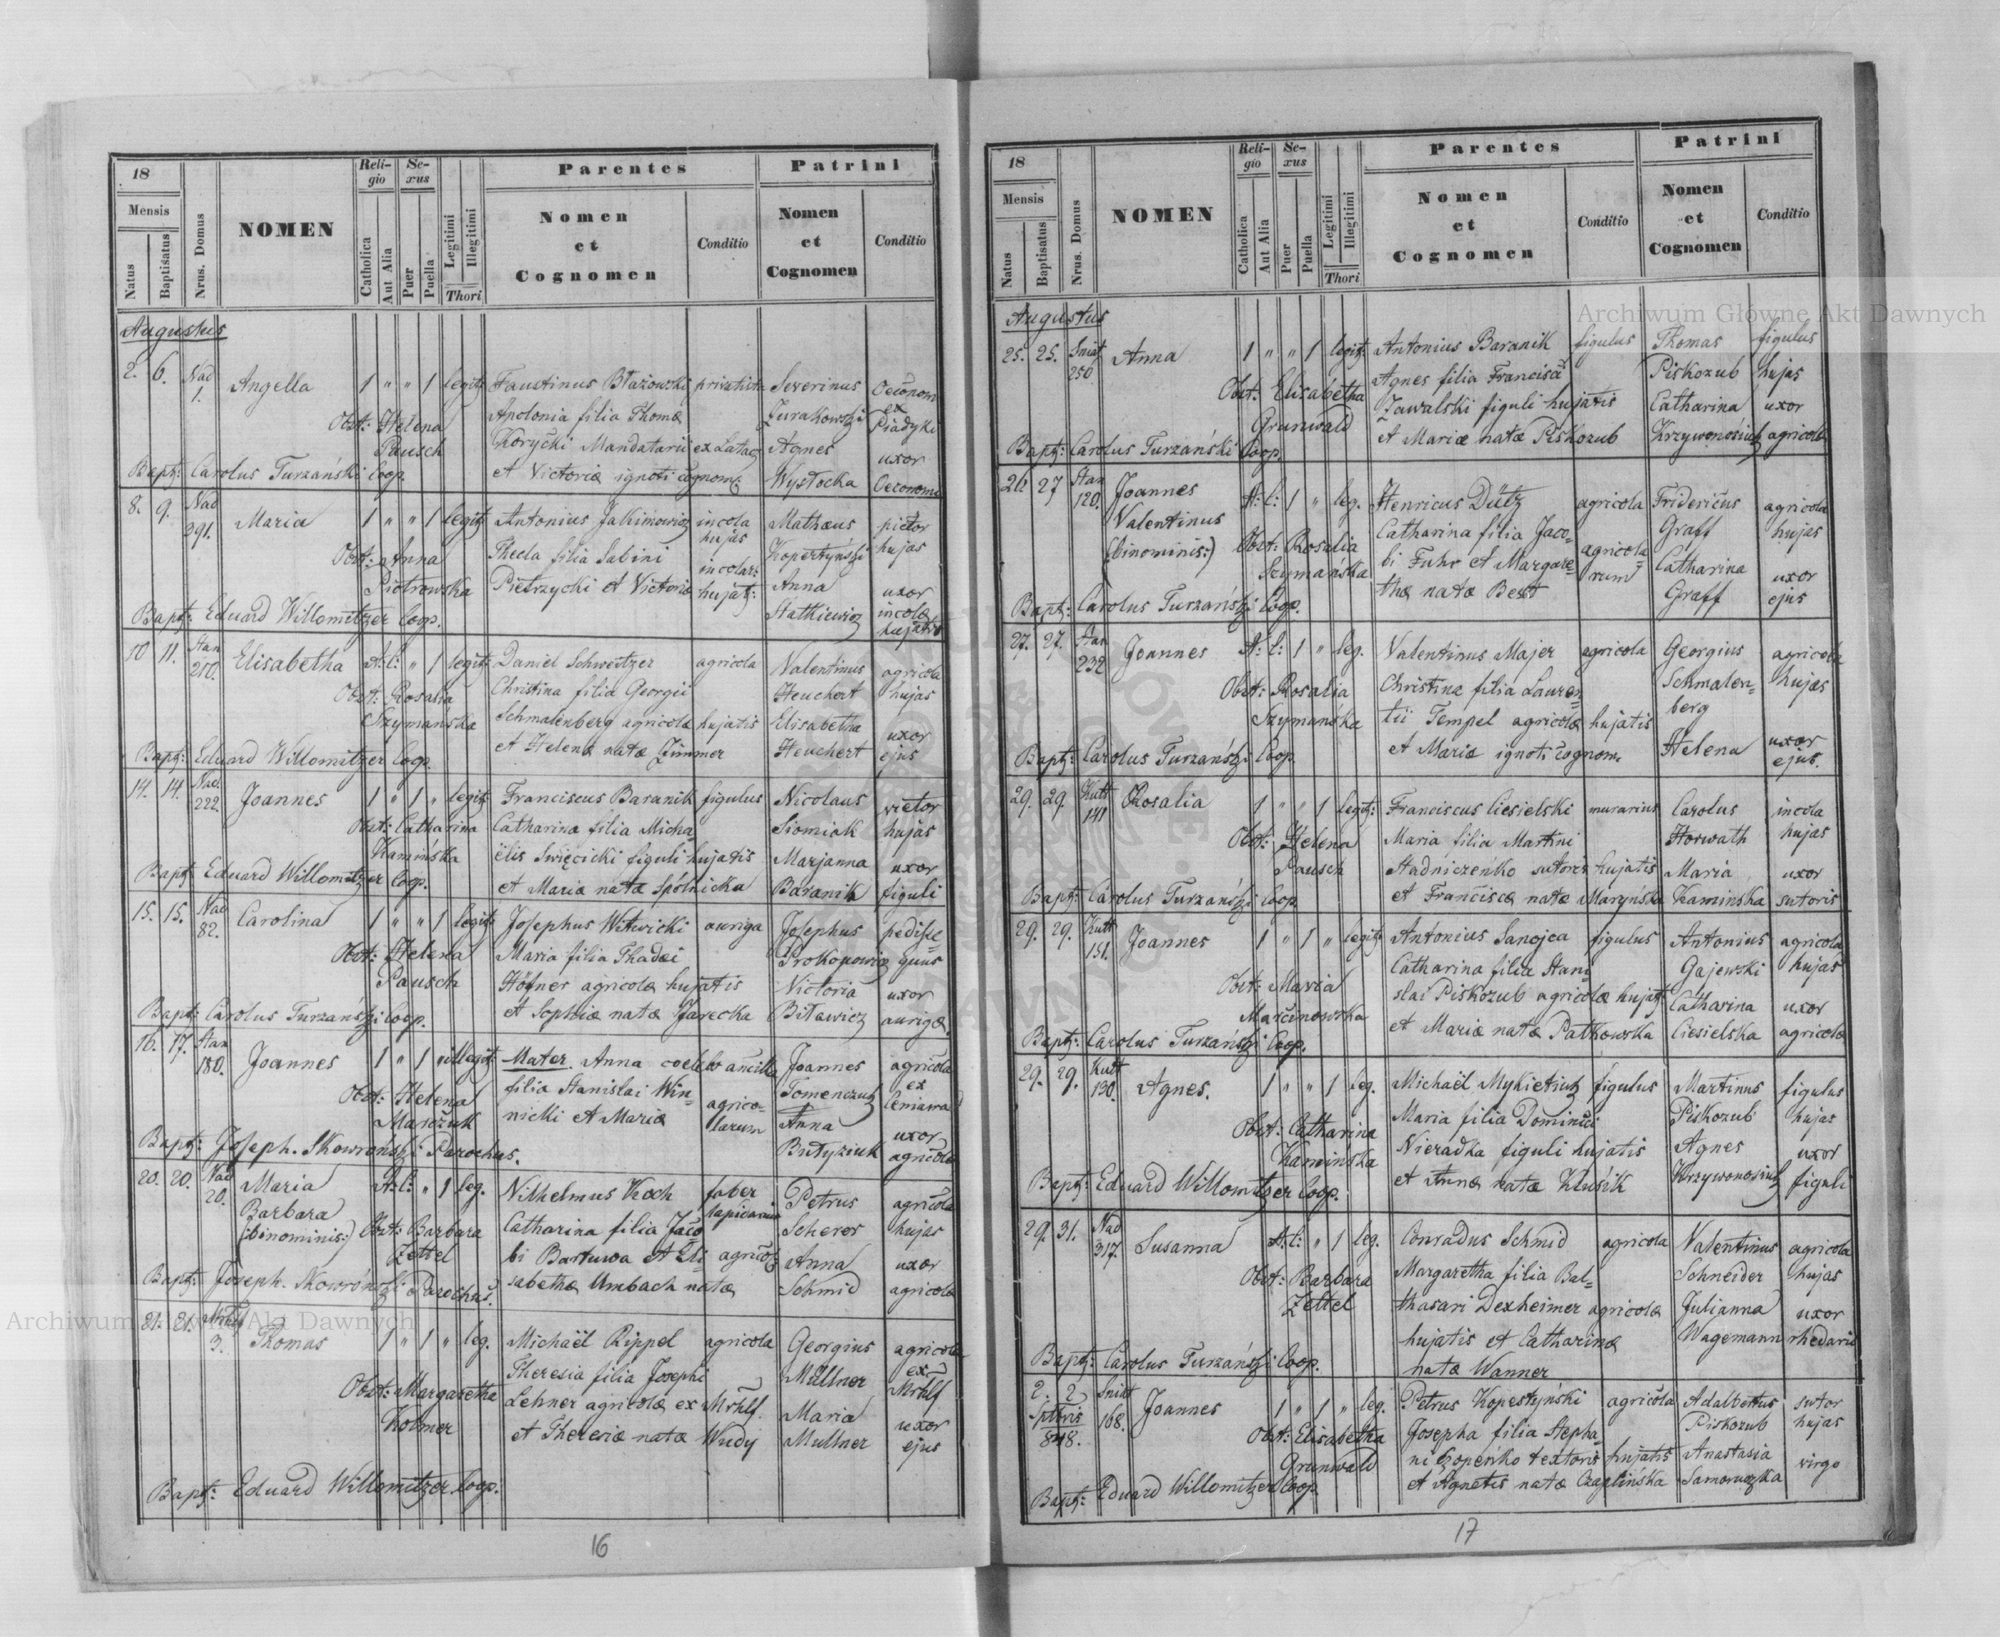 18
Mensis
Natus
Baptisatus
Nrus. Domus
NOMEN
Reli-
gio
Catholica
Aut Alia
Se-
xus
Puer
Puella
Legitimi
Illegitimi
Thori
Parentes
Nomen
et
Cognomen
Conditio
Patrini
Nomen
et
Cognomen
Conditio
Augustus
2. 6. Nad Angella 1 " " 1 legit: Faustinus Błażowski Severinus Oeconom
1. Obst: Helena Apolonia filia Thomæ Żurakowski ex Piadyki
Pausch Korycki Mandatarii Agnes uxor
Bapt: Carolus Turzański Coop. et Victoria ignoti cognom: Wysłocka Oeconomi
8. 9. Nad Maria 1 " " 1 legit: Antonius Jakimowicz incola Mathæus pictor
291. hujas Kopertyński hujas
Obst: Anna Thecla filia Sabini incolar: Anna uxor
Piotrowska Pietrzycki et Victoria hujat: Statkiewicz incolæ
Bapt: Eduard Willomitzer Coop. hujatis
10 11. Stan Elisabetha A: C: " 1 legit: Daniel Schweitzer agricola Valentinus agricola
210. Obst: Rosalia Christina filia Georgii Heuchert hujas
Szymańska Schmalenberg agricolæ hujatis Elisabetha uxor
Bapt: Eduard Willomitzer Coop. et Helenæ natæ Zimmer Heuchert ejus
14. 14. Nad. Joannes 1 " 1 " legit: Franciscus Baranik figulus Nicolaus vietor
222. Obst: Catharina Catharina filia Micha Siomiak hujas
Kamińska ëlis Święcicki figuli hujatis Marjanna uxor
Bapt: Eduard Willomitzer Coop. et Maria natæ Spólnicka Baranik figuli
15. 15. Nad Carolina 1 " " 1 legit: Josephus Witwicki auriga Josephus pedise=
82. Obst: Helena Maria filia Thadæi Prokopowicz quus
Pausch Höfner agricolæ hujatis Victoria uxor
Bapt: Carolus Turzański Coop. et Sophiæ natæ Jarecka Bitawicz aurigæ
16. 17. Stan Joannes 1 " 1 " illegit: Mater. Anna coelebs ancilla Joannes agricola
180. Obst: Helena filia Stanislai Win= Tomenczuk ex
Marczuk nicki et Maria agrico=larum Anna uxor
Bapt: Joseph. Skowroński Parochus. Butyziuk agricolæ
20. 20. Nad Maria A: C: " 1 leg. Wilhelmus Koch faber Petrus agricola
20. Barbara lapidarius Scherer hujas
(binominis:) Obst: Barbara Catharina filia Jaco
Zettel bi Bartuwa et Eli agricol: Anna uxor
Bapt: Joseph. Skowroński Parochus. sabethæ Umbach natæ Schmid agricolæ
21. 21. Thomas 1 " 1 " leg. Michaël Rippel agricola Georgius agricola
3. Theresia filia Josephi Müllner ex
Obst: Margaretha Lehner agricolæ ex Mrhlf. Maria Mrhlf
Kolmer et Theresiæ natæ Wudy Mullner uxor
ejus
Bapt: Eduard Willomitzer Coop.
16
18
Mensis
Natus
Baptisatus
Nrus. Domus
NOMEN
Reli-
gio
Catholica
Aut Alia
Se-
xus
Puer
Puella
Legitimi
Illegitimi
Thori
Parentes
Nomen
et
Cognomen
Conditio
Patrini
Nomen
et
Cognomen
Conditio
Augustus
25. 25. Sniat Anna 1 " " 1 legit: Antonius Baranik figulus Thomas figulus
250. Obst: Elisabetha Agnes filia Francisci Piskozub hujas
Grunwald Zawalski figuli hujatis Catharina uxor
Bapt: Carolus Turzański Coop. et Mariæ natæ Piskozub Krzywonosiuk agricolæ
26. 27 Stan Joannes A: C: 1 " leg. Henricus Dütz agricola Fridericus agricola
120. Valentinus Catharina filia Jaco= Graff hujas
(binominis:) Obst: Rosalia bi Fuhr et Margare= agricola=rum Catharina uxor
Szymańska thæ natæ Best Graff ejus
Bapt: Carolus Turzański Coop.
27. 27. Stan Joannes A: C: 1 " leg. Valentinus Majer agricola Georgius agricola
232 Obst: Rosalia Christina filia Lauren= Schmalen= hujas
Szymańska tii Tempel agricolæ hujatis berg
Bapt: Carolus Turzański Coop. et Mariæ ignoti cognom. Helena uxor
ejus.
29. 29. Kutt Rosalia 1 " " 1 legit: Franciscus Ciesielski murarius Carolus incola
141 Obst: Helena Maria filia Martini Horwath hujas
Pausch Stadniczeńko sutoris hujatis Maria uxor
Bapt: Carolus Turzański Coop et Franciscæ natæ Maryńska Kamińska sutoris
29. 29. Kutt Joannes 1 " 1 " legit: Antonius Sanojca figulus Antonius agricola
151. Obst: Maria Catharina filia Stani Gajewski hujas
Marcinowska slai Piskozub agricolæ hujat: Catharina uxor
Bapt: Carolus Turzański Coop. et Mariæ natæ Patkowska Ciesielska agricolæ
29. 29. Kutt Agnes. 1 " " 1 leg. Michaël Mykietiuk figulus Martinus figulus
130. Obst: Catharina Maria filia Dominici Piskozub hujas
Kaminska Nieradka figuli hujatis Agnes uxor
Bapt: Eduard Willomitzer Coop. et Annæ natæ Krzywonosiuk figuli
29. 31. Nad Susanna A: C: " 1 leg. Conradus Schmid agricola Valentinus agricola
317. Obst: Barbara Margaretha filia Bal= Schneider hujas
Zettel thasari Dexheimer agricolæ Julianna uxor
hujatis et Catharinæ Wagemann rhedarii
Bapt: Carolus Turzański Coop. natæ Wanner
2. 2 Sniat Joannes 1 " 1 " leg. Petrus Kopestyński agricola Adalbertus sutor
Sptbris 168. Obst: Elisabetha Josepha filia Stepha= Piskozub hujas
848. Grunwald ni textoris hujatis Anastasia virgo
Bapt: Eduard Willomitzer Coop. et Agnetis natæ Czaplińska
17
Archiwum Główne Akt Dawnych
Archiwum Główne Akt Dawnych